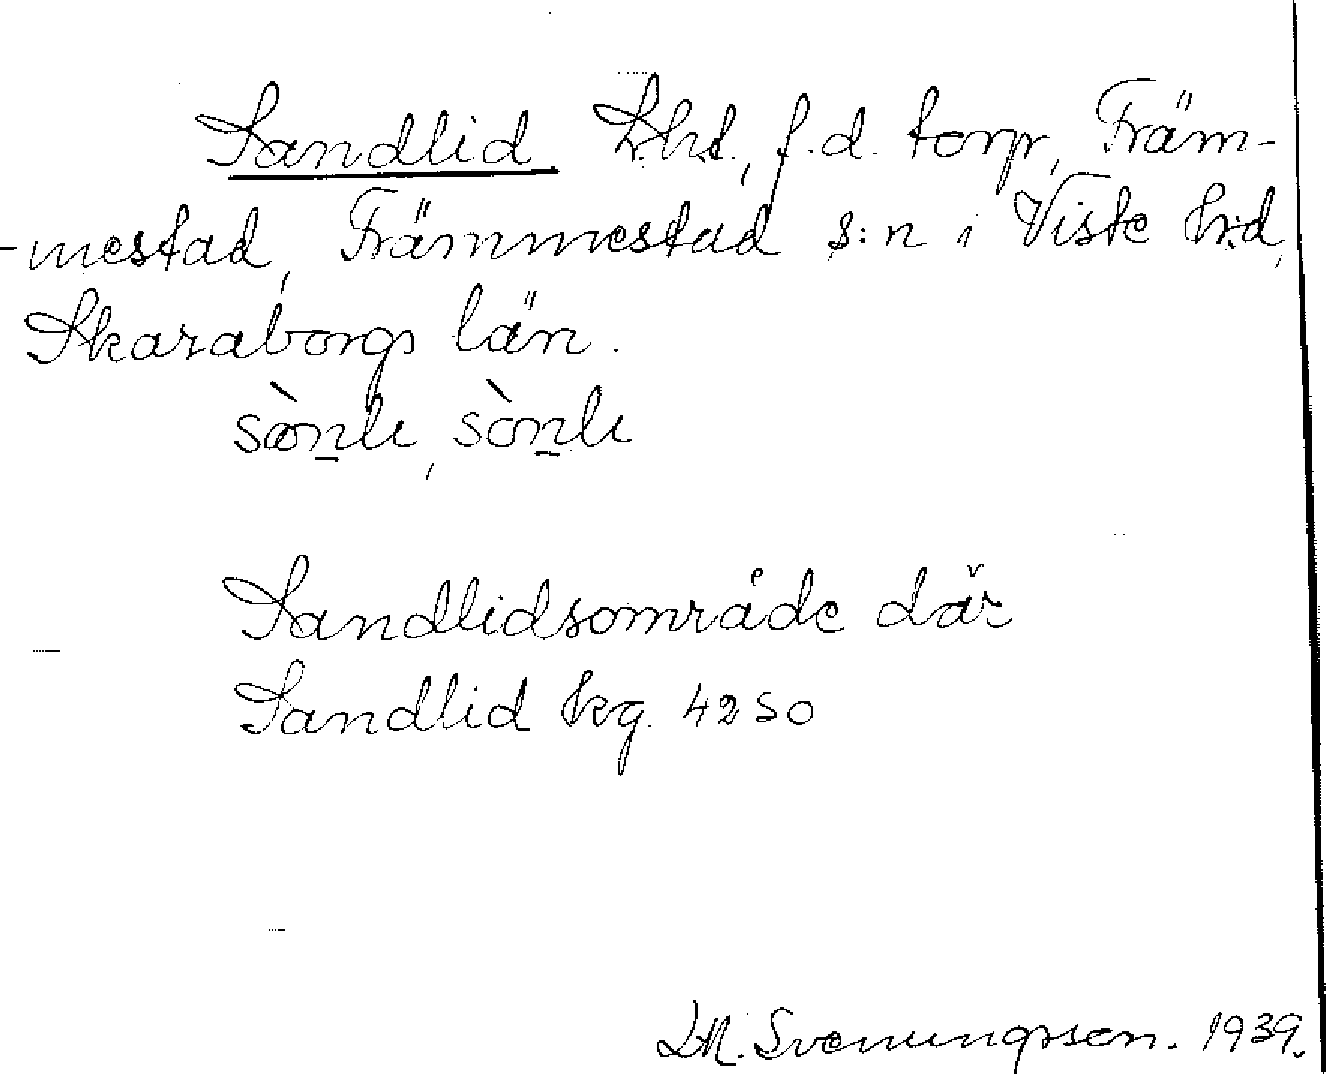 Sandlid L.h.t., f.d. torp, Främ-
-mestad, Främmestad s:n i Viste h:d,
Skaraborgs län.
sònlı, sònlı
Sandlidsområde där
Sandlid hg. 4250
Svenungsson. 1939.